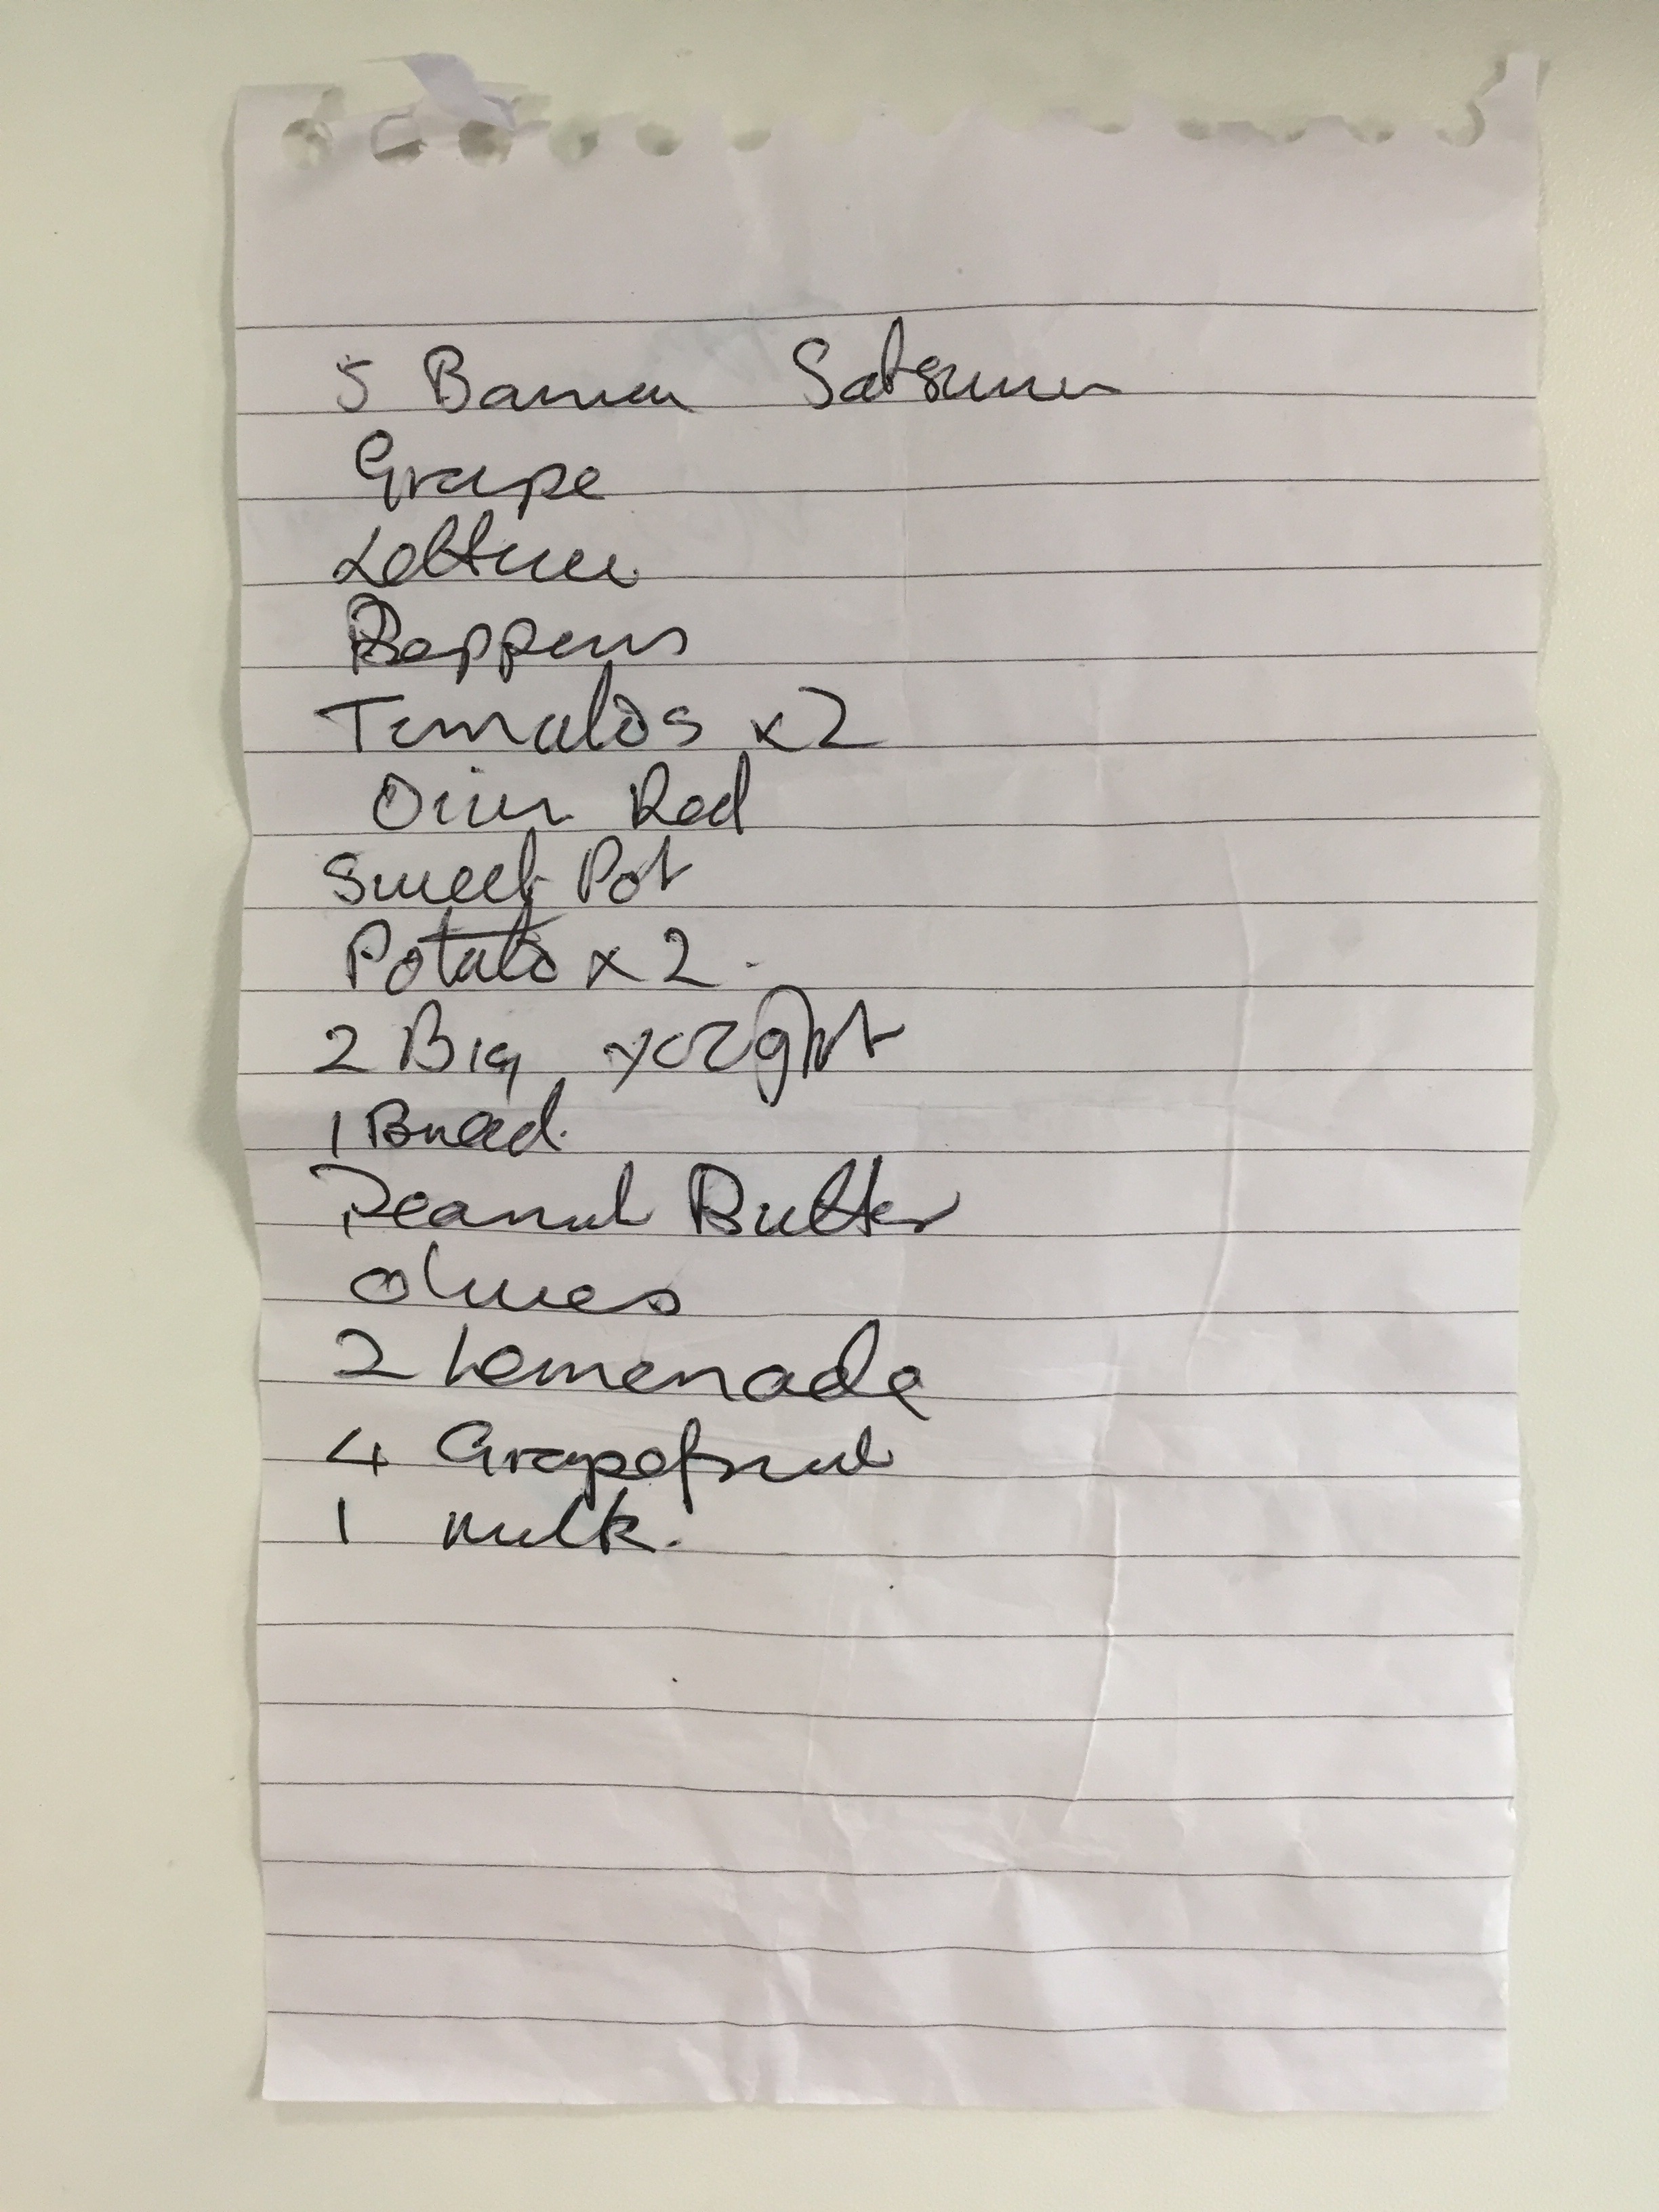 5 Banan Satsuma
Grape
Lettuce
Peppers
Tomatos x2
Onion Red
Sweet Pot
Potato x 2.
2 Big yorght
1 Bread.
Peanut Butter
Olives
2 Lemenade
4 Grapefruit
1 milk.